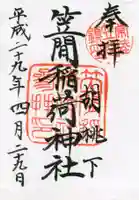 奉拝
胡桃下
笠間稲荷神社
平成二十九年四月二十九日